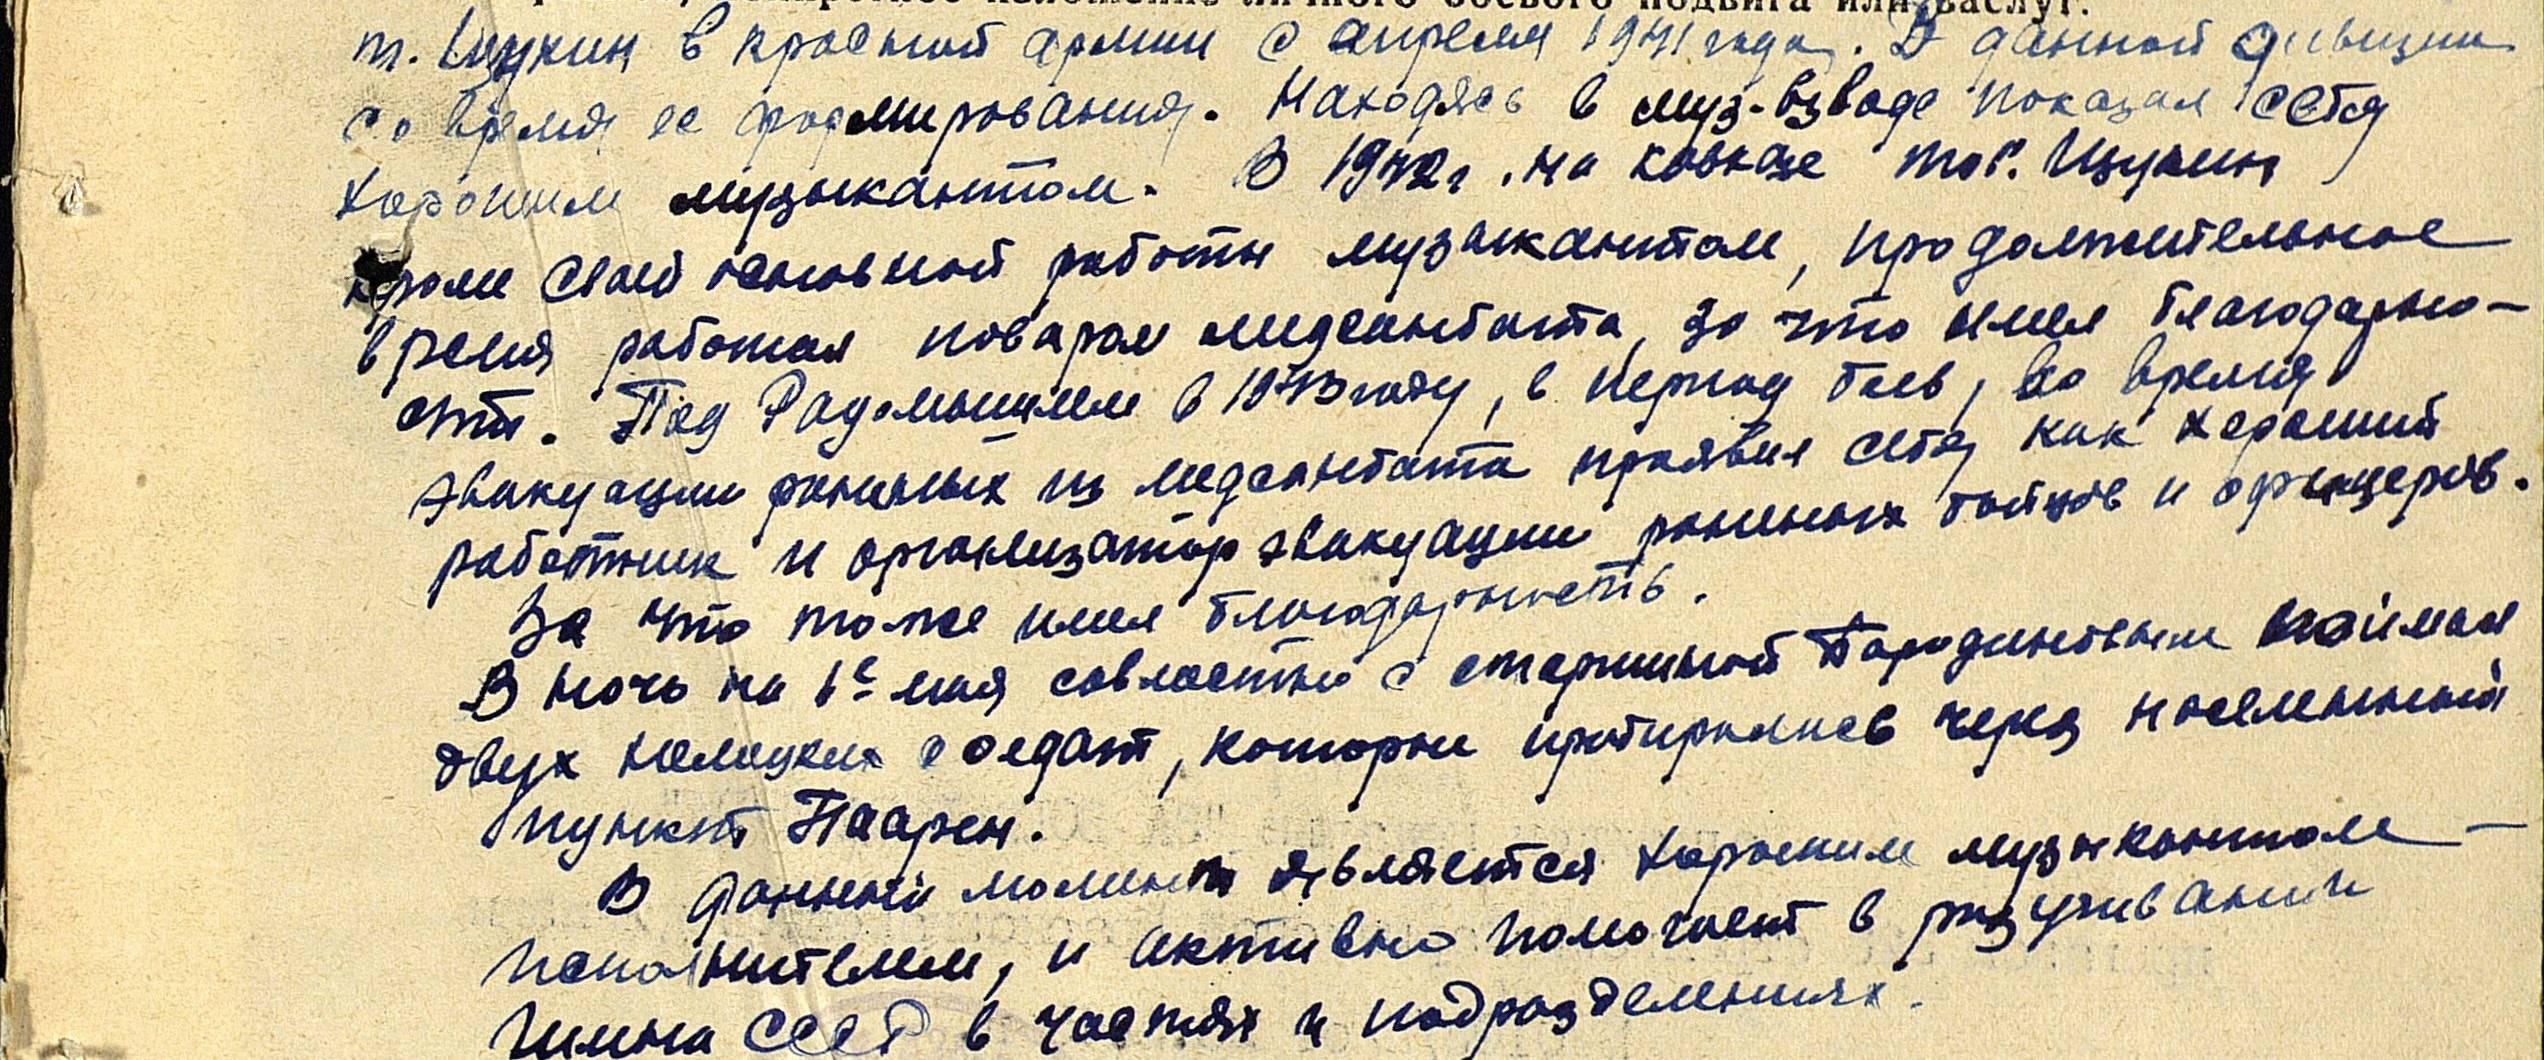 изложение личного боевого подвига или заслуг.
т. Щукин в красной армии с апреля 1941 года. В данной дивизии
со время ее формирования. Находясь в муз-взводе показал себя
хорошим музыкантом. В 1942 г. на кавказе тов. Щукин
кроме своей основной работы музыкантом, продолжительное
время работал поваром медсанбата, за что имел благодарно-
сти. Под Радомышлем в 1943 году, в период боев, во время
эвакуации раненых из медсанбата проявил себя как хороший
работник и организатор эвакуации раненых бойцов и офицеров.
За что тоже имел благодарность.
В ночь на 1е мая совместно с старшиной Бородиновым поймал
двух немецких солдат, которые пробирались через населенный
пункт Паарен.
В данный момент является хорошим музыкантом –
исполнителем, и активно помогает в разучивании
гимна СССР в частях и подразделениях.